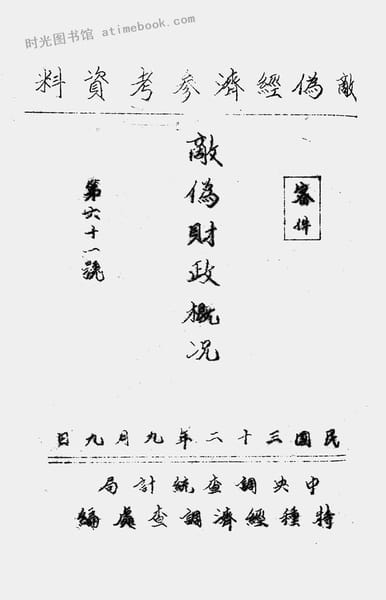 时光图书馆 atimebook.com
敵偽經濟參考資料
密件
敵偽財政概況
第六十一號
民國三十二年九月九日
中央調查統計局
特種經濟調查處編